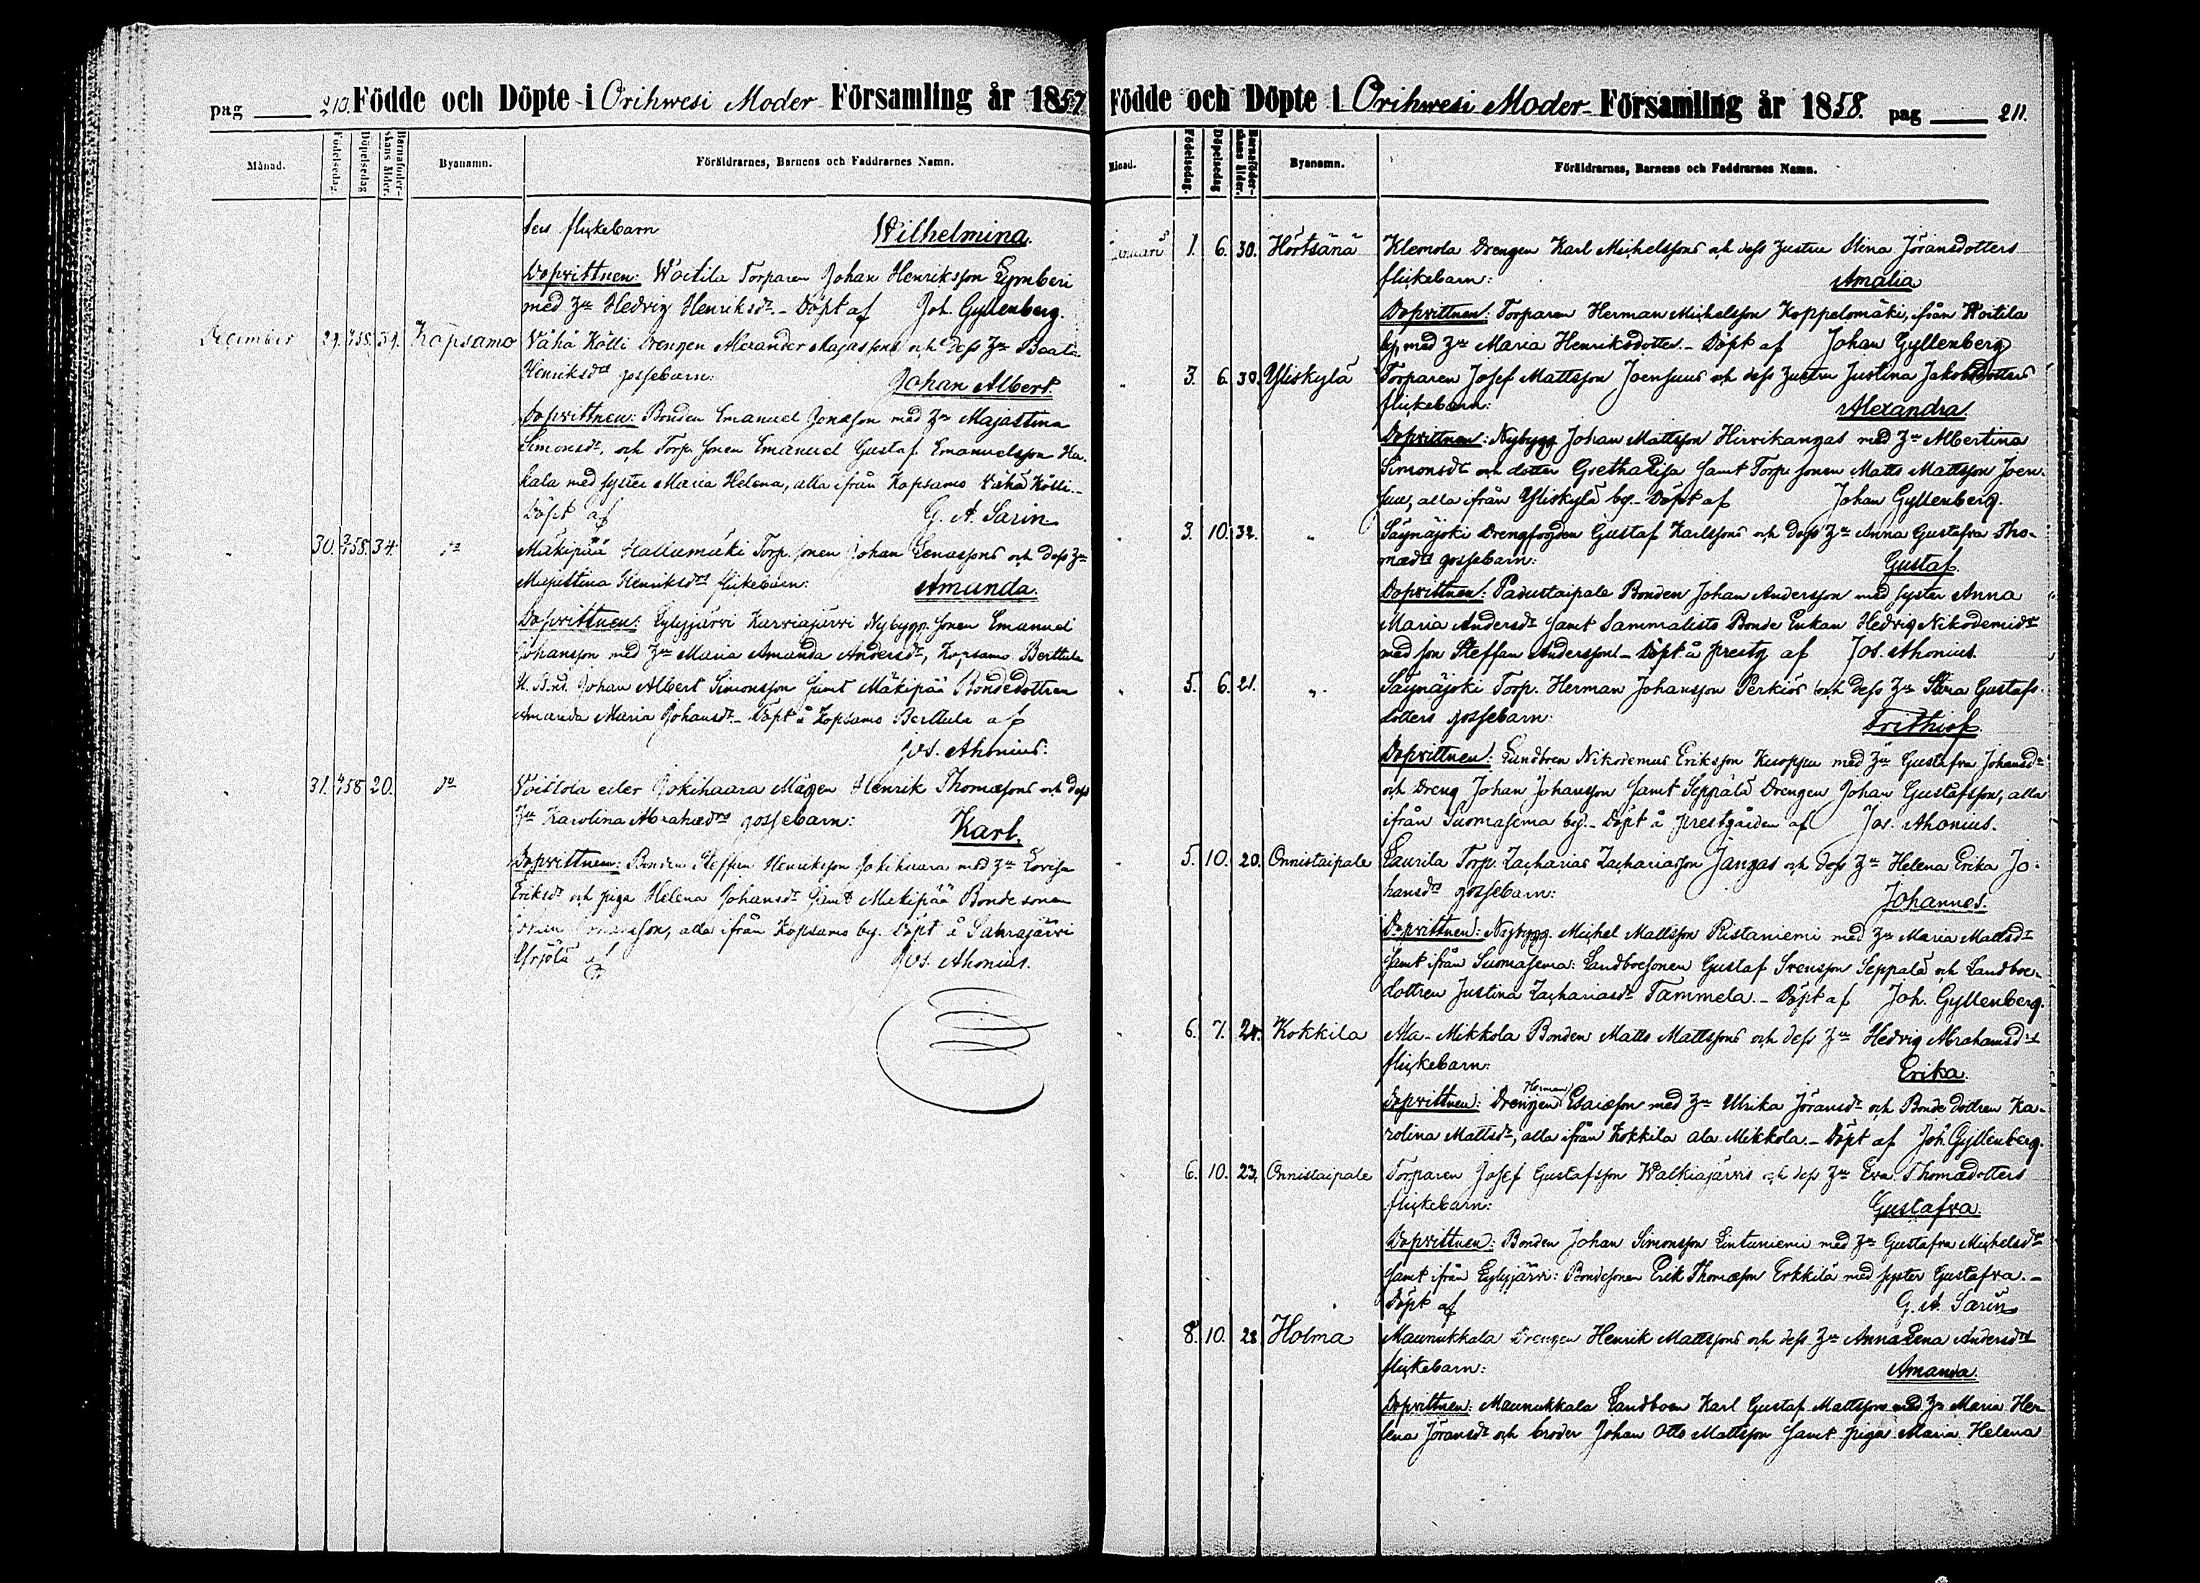 pag 210. Födde och Döpte i Orihwesi Moder Församling år 1857
Månad. Födelsedag. Döpelsedag. Barnaföderskans ålder. Byanamn. Föräldrarnes, Barnens och Faddrarnes Namn.
ters flickebarn Wilhelmina.
Dopvittnen: Woitila Torparen Johan Henriksson
med Hu Hedvig Henriksdr. - Döpt af Joh. Gyllenberg.
December 29. 58. Kopsamo Vähä Kölli Drengen Alexander och dess Hu Beata
Henriksdrs gossebarn: Johan Albert.
Dopvittnen: Bonden Emanuel Jonasson med Hu Majastina
Simonsdr, och Torp. sonen Emanuel Gustaf Emanuelsson Ha-
kala med syster Maria Helena, alla ifrån Kopsamo Vähä Kölli.-
Döpt af G. A. Sarin
30. 58. 34. do Mäkipää Hallumäki Torp. sonen Johan och dess Hu
Majastina Henriksdrs flickebarn: Amanda.
Dopvittnen: Eylyjärvi Karviajärvi Nybygg. sonen Emanuel
Johansson med Hu Maria Amanda Andersdr, Kopsamo Berttula
Johan Albert Simonsson samt Mäkipää Bondedottren
Amanda Maria Johansdr. - Döpt å Kopsamo Berttula af
Jos. Ahonius.
31. 58. 20. do Voittola eller Jokihaara Mågen Henrik Thomassons och dess
Hu Karolina Abrahamdrs gossebarn: Karl.
Dopvittnen: Bonden Steffan Henriksson Jokihaara med Hu Lovisa
Eriksdr och piga Helena Johansdr samt Mäkipää Bondesonen
Johansson, alla ifrån Kopsamo by. Döpt å
Yrjölä af Jos. Ahonius.
Födde och Döpte i Orihwesi Moder Församling år 1858. pag 211.
Månad. Födelsedag. Döpelsedag Barnaföderskans ålder. Byanamn. Föräldrarnes, Barnens och Faddrarnes Namn.
Januari 1. 6. 30. Hörtsänä Klemola Drengen Karl Michelssons och dess Hustru Stina Jöransdotters
flickebarn: Amalia
Dopvittnen: Torparen Herman Michelsson Koppelomäki, ifrån Woitila
by, med Hu Maria Henriksdotter. - Döpt af Johan Gyllenberg
3. 6. 39. Yliskylä Torparen Josef Mattsson Joensuus och dess Hustru Justina Jakobsdotters
flickebarn: Alexandra.
Dopvittnen: Nybygg Johan Mattsson Hirvikangas med Hu Albertina
Simonsdr och dotter Gretha Lisa samt Torp. sonen Matts Mattsson Joen-
suu, alla ifrån Yliskylä by. - Döpt af Johan Gyllenberg.
3. 10. 32. " Säynäjoki Drengfogden Gustaf Karlssons och dess Hu Anna Gustafva Tho-
mædrs gossebarn: Gustaf.
Dopvittnen: Padustaipale Bonden Johan Andersson med syster Anna
Maria Andersdr samt Sammalisto Bonde Enkan Hedvig Nikodemidr
med son Steffan Andersson. - Döpt å prestg af Jos. Ahonius.
5. 6. 21. " Säynäjoki Torp. Herman Johansson Perkiös och dess Hu Stina Gustafs-
dotters gossebarn: Frithiof.
Dopvittnen: Landboen Nikodemus Eriksson Kuoppu med Hu Gustafva Johansdr
och Dreng Johan Johansson samt Seppälä Drengen Johan Gustafsson, alla
ifrån Suomasema by. - Döpt å prestgården af Jos. Ahonius.
5. 10. 20. Onnistaipale Laurila Torp. Zacharias Zachariasson Jangas och dess Hu Helena Erika Jo-
hansdrs gossebarn: Johannes.
Dopvittnen: Nybygg. Michel Mattsson Ristaniemi med Hu Maria Mattsdr
samt ifrån Suomasema: Landbosonen Gustaf Svensson Seppälä och Landbo-
dottren Justina Zachariasdr Tammela. - Döpt af Joh. Gyllenberg.
6. 7. 24. Kokkila Ala-Mikkola Bonden Matts Mattssons och dess Hu Hedvig Abrahamsdrs
flickebarn: Erika.
Dopvittnen: Drengen Herman Esaiasson med Hu Ulrika Jöransdr och Bonde dottren Ka-
rolina Mattsdr, alla ifrån Kokkila Ala Mikkola. - Döpt af Joh. Gyllenberg.
6. 10. 23. Onnistaipale Torparen Josef Gustafsson Walkiajärvis och dess Hu Eva Thomædotters
flickebarn: Gustafva.
Dopvittnen: Bonden Johan Simonsson Lintuniemi med Hu Gustafva Michelsdr
samt ifrån Eylyjärvi: Bondesonen Erik Thomasson Erkkilä med syster Gustafva. -
Döpt af G. A. Sarin
8. 10. 28. Holma Maunukkala Drengen Henrik Mattssons och dess Hu Anna Lena Andersdrs
flickebarn: Amanda.
Dopvittnen: Maunukkala Landboen Karl Gustaf Mattsson med Hu Maria He-
lena Jöransdr och broder Johan Otto Mattsson samt pigan Maria Helena